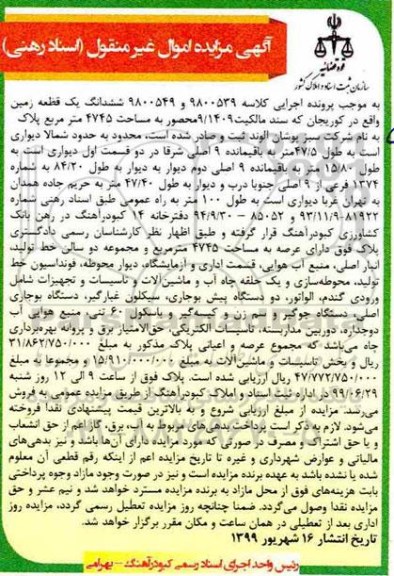 آگهی مزایده اموال غیر منقول (اسناد رهنی)
قوه قضائیه
سازمان ثبت اسناد و املاک کشور
به موجب پرونده اجرایی کلاسه ۹۸۰۰۵۳۹ و ۹۸۰۰۵۴۹ ششدانگ یک قطعه زمین
واقع در کوریجان که سند مالکیت ۹/۱۴۰۹ محصور به مساحت ۴۷۴۵ متر مربع پلاک
به نام شرکت سبز پوشان الوند ثبت و صادر شده است، محدود به حدود شمالا دیواری
است به طول ۴۷/۵ متر به باقیمانده ۹ اصلی شرقا در دو قسمت اول دیواری است به
طول ۱۵/۸۰ متر به باقیمانده ۹ اصلی دوم دیوار به دیوار به طول ۸۴/۲۰ به شماره
۱۳۷۴ فرعی از ۹ اصلی جنوبا درب و دیوار به طول ۴۷/۴۰ به حریم جاده همدان
به تهران غربا دیواری است به طول ۱۰۰ متر به راه عمومی طبق اسناد رهنی شماره
۸۱۹۲۲-۹۳/۱۱/۹ و ۸۵۰۵۲ - ۹۴/۹/۳۰ دفترخانه ۱۴ کبودرآهنگ در رهن بانک
کشاورزی کبودرآهنگ قرار گرفته و طبق اظهار نظر کارشناسان رسمی دادگستری
پلاک فوق دارای عرصه به مساحت ۴۷۴۵ مترمربع و مجموعه دو سالن خط تولید،
انبار اصلی، منبع آب هوایی، قسمت اداری و آزمایشگاه، دیوار محوطه، فونداسیون خط
تولید، محوطه‌سازی و یک حلقه چاه آب و ماشین‌آلات و تاسیسات و تجهیزات شامل
ورودی گندم، الواتور، دو دستگاه پیش بوجاری، سیکلون غبارگیر، دستگاه بوجاری
اصلی، دستگاه جوگیر و سم زن و کیسه‌گیر و باسکول ۶۰ تنی، منبع هوایی آب
دوجداره، دوربین مداربسته، تاسیسات الکتریکی، حق‌الامتیاز برق و پروانه بهره‌برداری
چاه می‌باشد که مجموع عرصه و اعیانی پلاک مذکور به مبلغ ۳۱/۸۶۲/۷۵۰/۰۰۰
ریال و بخش تاسیسات و ماشین‌آلات به مبلغ ۱۵/۹۱۰/۰۰۰/۰۰۰ و مجموعا به مبلغ
۴۷/۷۷۲/۷۵۰/۰۰۰ ریال ارزیابی شده است. پلاک فوق از ساعت ۹ الی ۱۲ روز شنبه
۹۹/۰۶/۲۹ در اداره ثبت اسناد و املاک کبودرآهنگ از طریق مزایده عمومی به فروش
می‌رسد. مزایده از مبلغ ارزیابی شروع و به بالاترین قیمت پیشنهادی نقدا فروخته
می‌شود. لازم به ذکر است پرداخت بدهی‌های مربوط به آب، برق، گاز اعم از حق انشعاب
و یا حق اشتراک و مصرف در صورتی که مورد مزایده دارای آن‌ها باشد و نیز بدهی‌های
مالیاتی و عوارض شهرداری و غیره تا تاریخ مزایده اعم از اینکه رقم قطعی آن معلوم
شده یا نشده باشد به عهده برنده مزایده است و نیز در صورت وجود مازاد وجوه پرداختی
بابت هزینه‌های فوق از محل مازاد به برنده مزایده مسترد خواهد شد و نیم عشر و حق
مزایده نقدا وصول می‌گردد. ضمنا چنانچه روز مزایده تعطیل رسمی گردد، مزایده روز
اداری بعد از تعطیلی در همان ساعت و مکان مقرر برگزار خواهد شد.
تاریخ انتشار ۱۶ شهریور ۱۳۹۹
رئیس واحد اجرای اسناد رسمی کبودرآهنگ – بهرامی